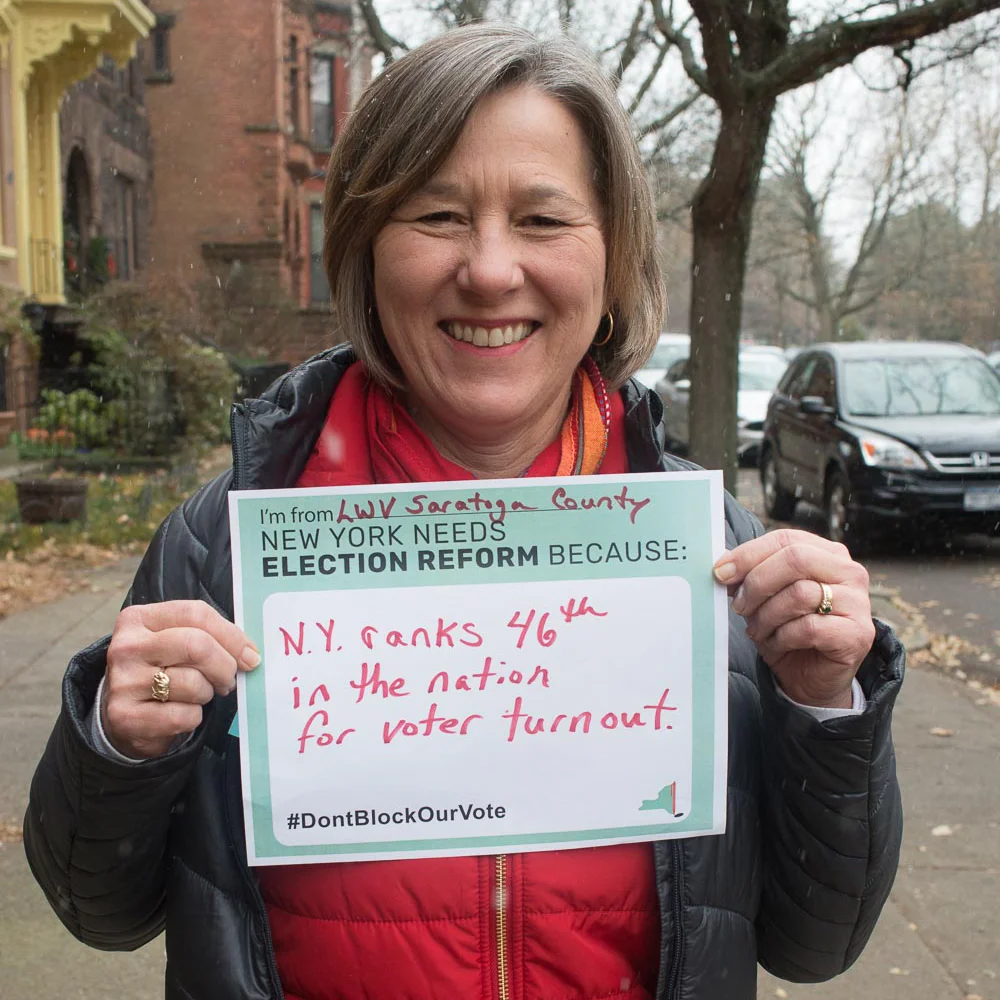 I'm from LWV Saratoga County
NEW YORK NEEDS
ELECTION REFORM BECAUSE:
N.Y. ranks 46th
in the nation
for voter turnout.
#DontBlockOurVote